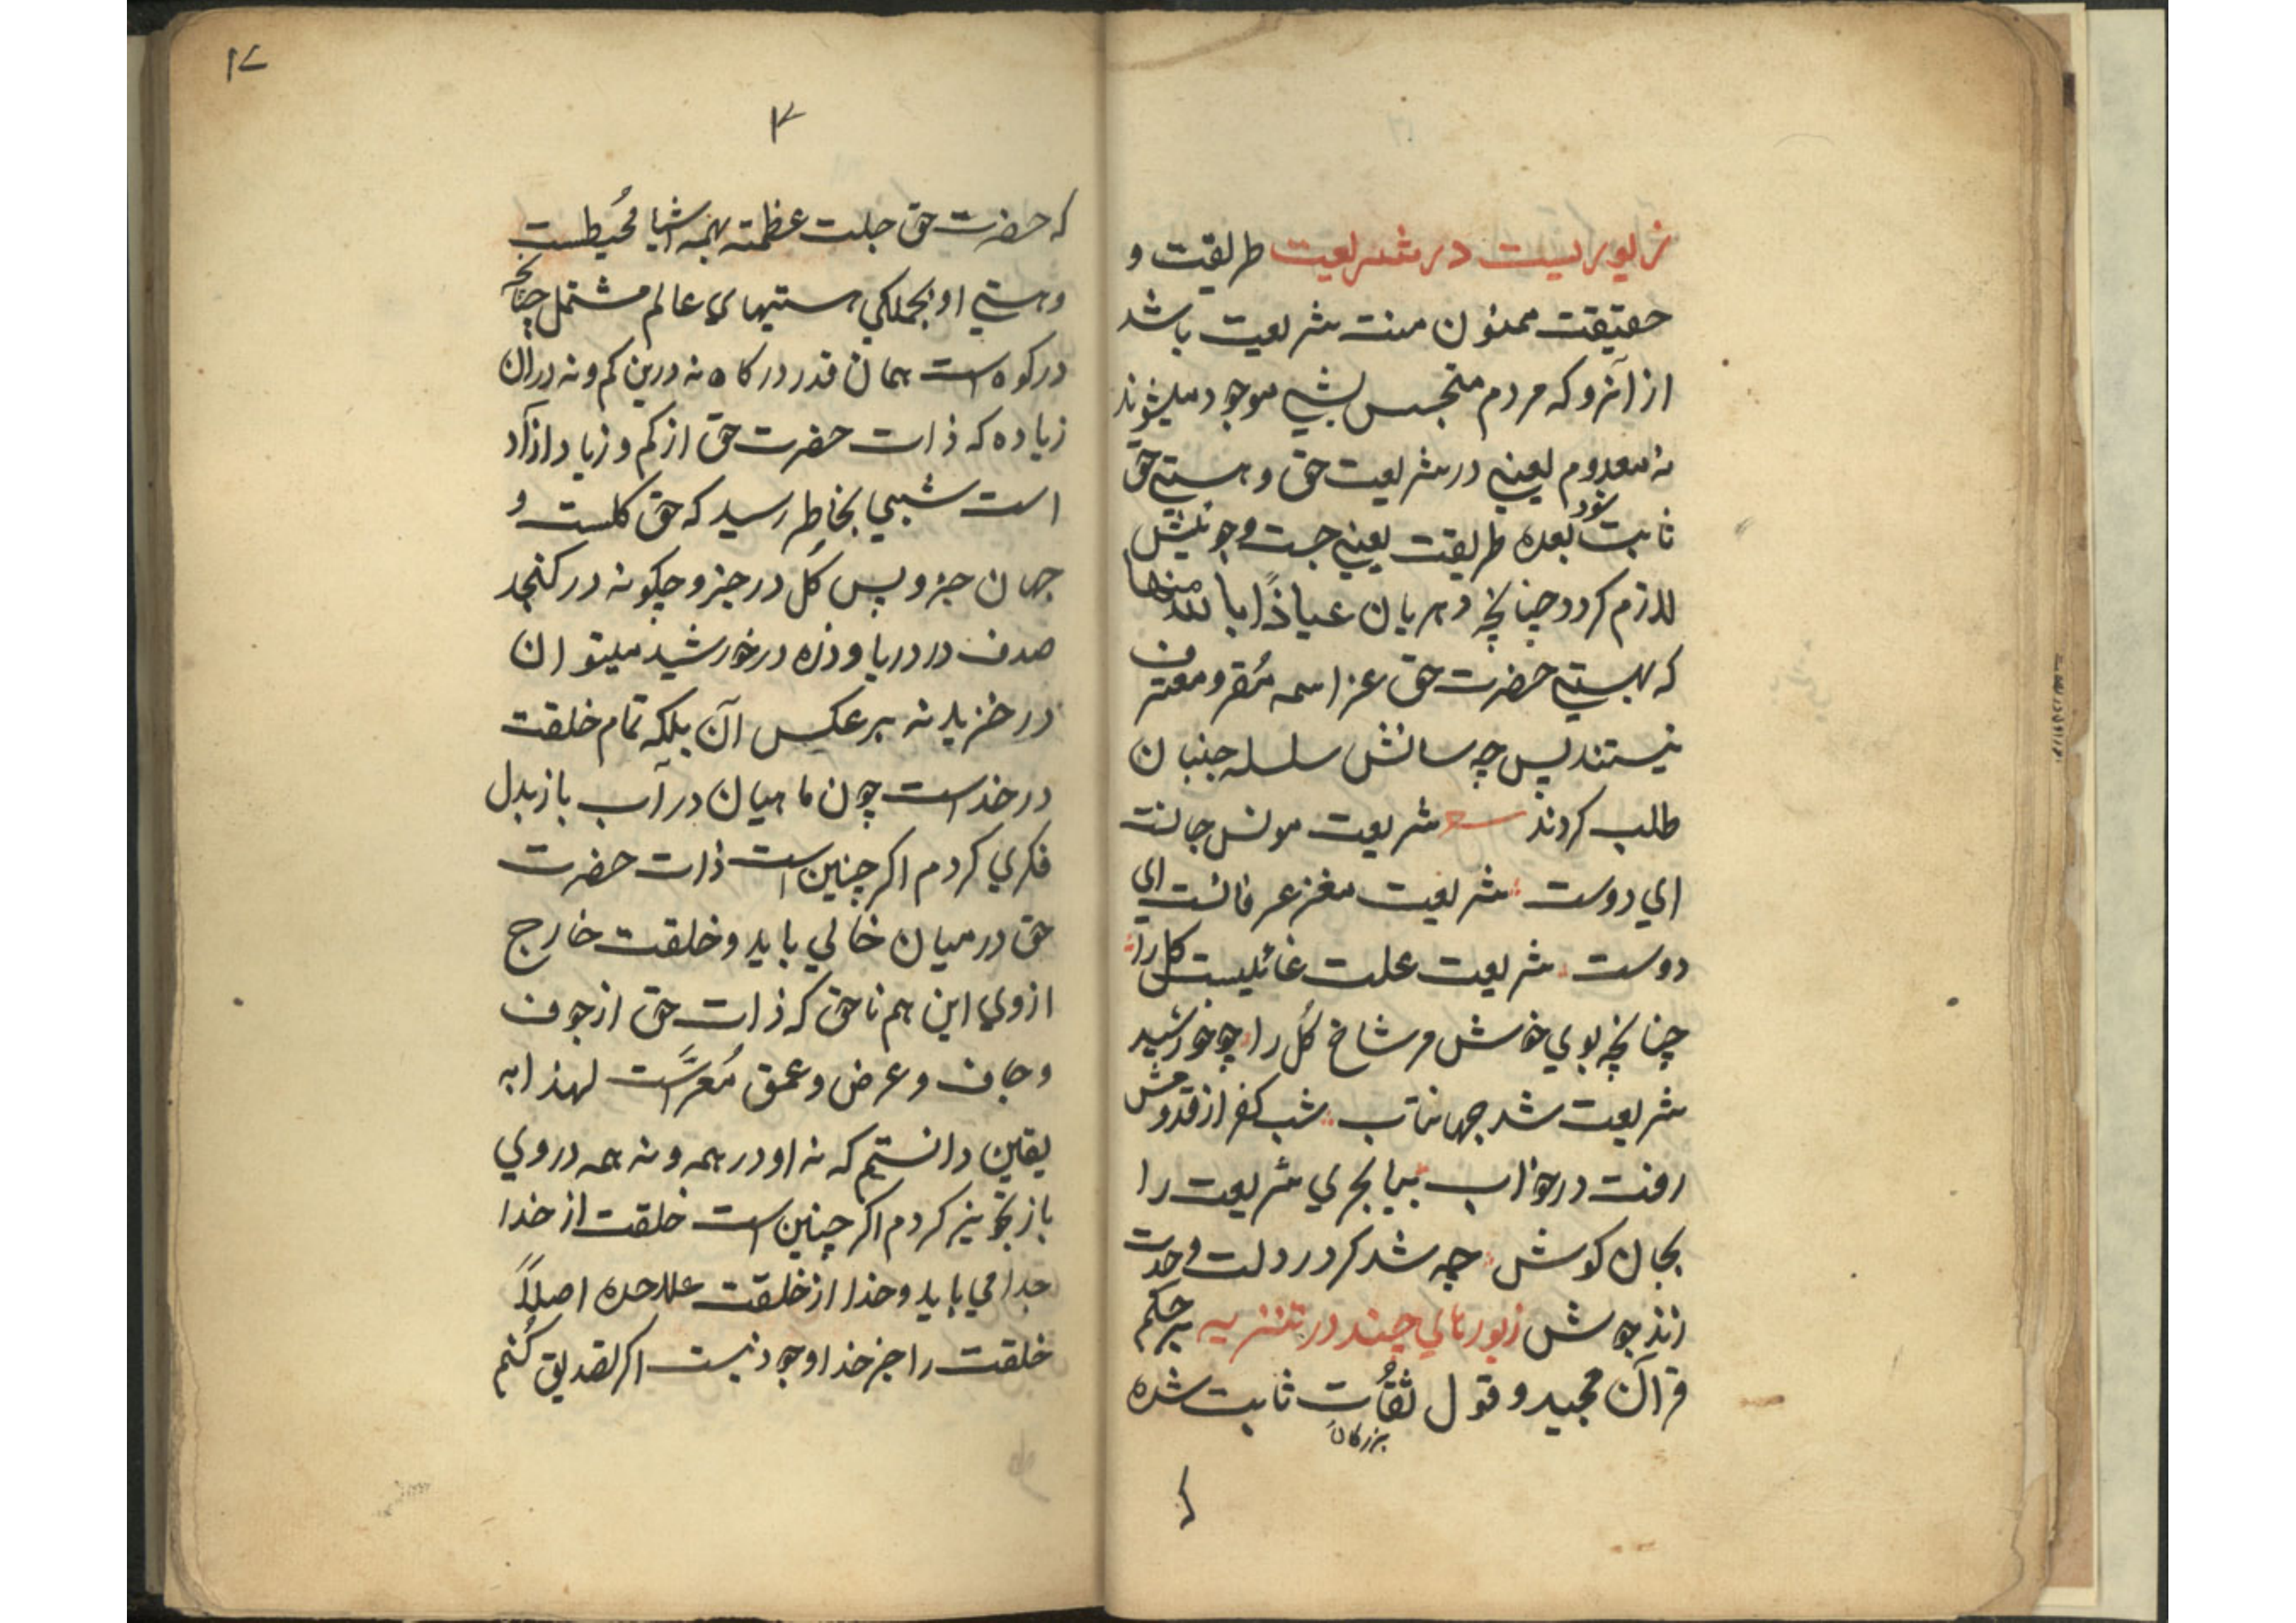 زیوریست در شریعت طریقت و
حقیقت ممنون منت شریعت باشد
از آنرو که مردم متجسس بشیی موجود میشوند
نه معدوم یعنی در شریعت حق و هستی حق
ثابت شود بعده طریقت یعنی جست و جویش
لازم کردد چنانچه دهریان عیاذًا بالله منها
که بهستی حضرت حق عز اسمه مُقر و معترف
نیستند پس چه سانش سلسله جنبان
طلب کردند شریعت مونس جانت
ای دوست شریعت مغز عرفانت ای
دوست شریعت علت غائیست کل را
چنانچه بوی خوش مر شاخ کُل را چو خورشید
شریعت شد جهانتاب شب کفر از قدومش
رفت در خواب بیا بحری شریعت را
بجان کوش چه شد کر در دلت وحدت
زند جوش زیورهای چند در تنزیه بر حکم
قرآن مجید و قول ثقُات ثابت شده
بزرکان
که
۱۷
۳
که حضرت حق جلت عظمته بهمه اشیا مُحیطست
و هستی او بجملکی هستیهای عالم مشتمل چنانچه
در کوه است همان قدر در کاه نه درین کم و نه در آن
زیاده که ذات حضرت حق از کم و زیاد آزاد
است شبی بخاطر رسید که حق کلست و
جهان جزو پس کُل در جزو چکونه در کنجد
صدف در دریا و ذره در خورشید میتوان
در خزید نه برعکس آن بلکه تمام خلقت
در خداست چون ماهیان در آب باز بدل
فکری کردم اکر چنین است ذات حضرت
حق در میان خالی باید و خلقت خارج
از وی این هم ناحق که ذات حق از جوف
و جاف و عرض و عمق مُعرّاست لهذا به
یقین دانستم که نه او در همه و نه همه در وی
باز تجویز کردم اکر چنین است خلقت از خدا
جدا می باید و خدا از خلقت علاحده اصلاً
خلقت را جز خدا وجود نیست اکر تصدیق کُنم